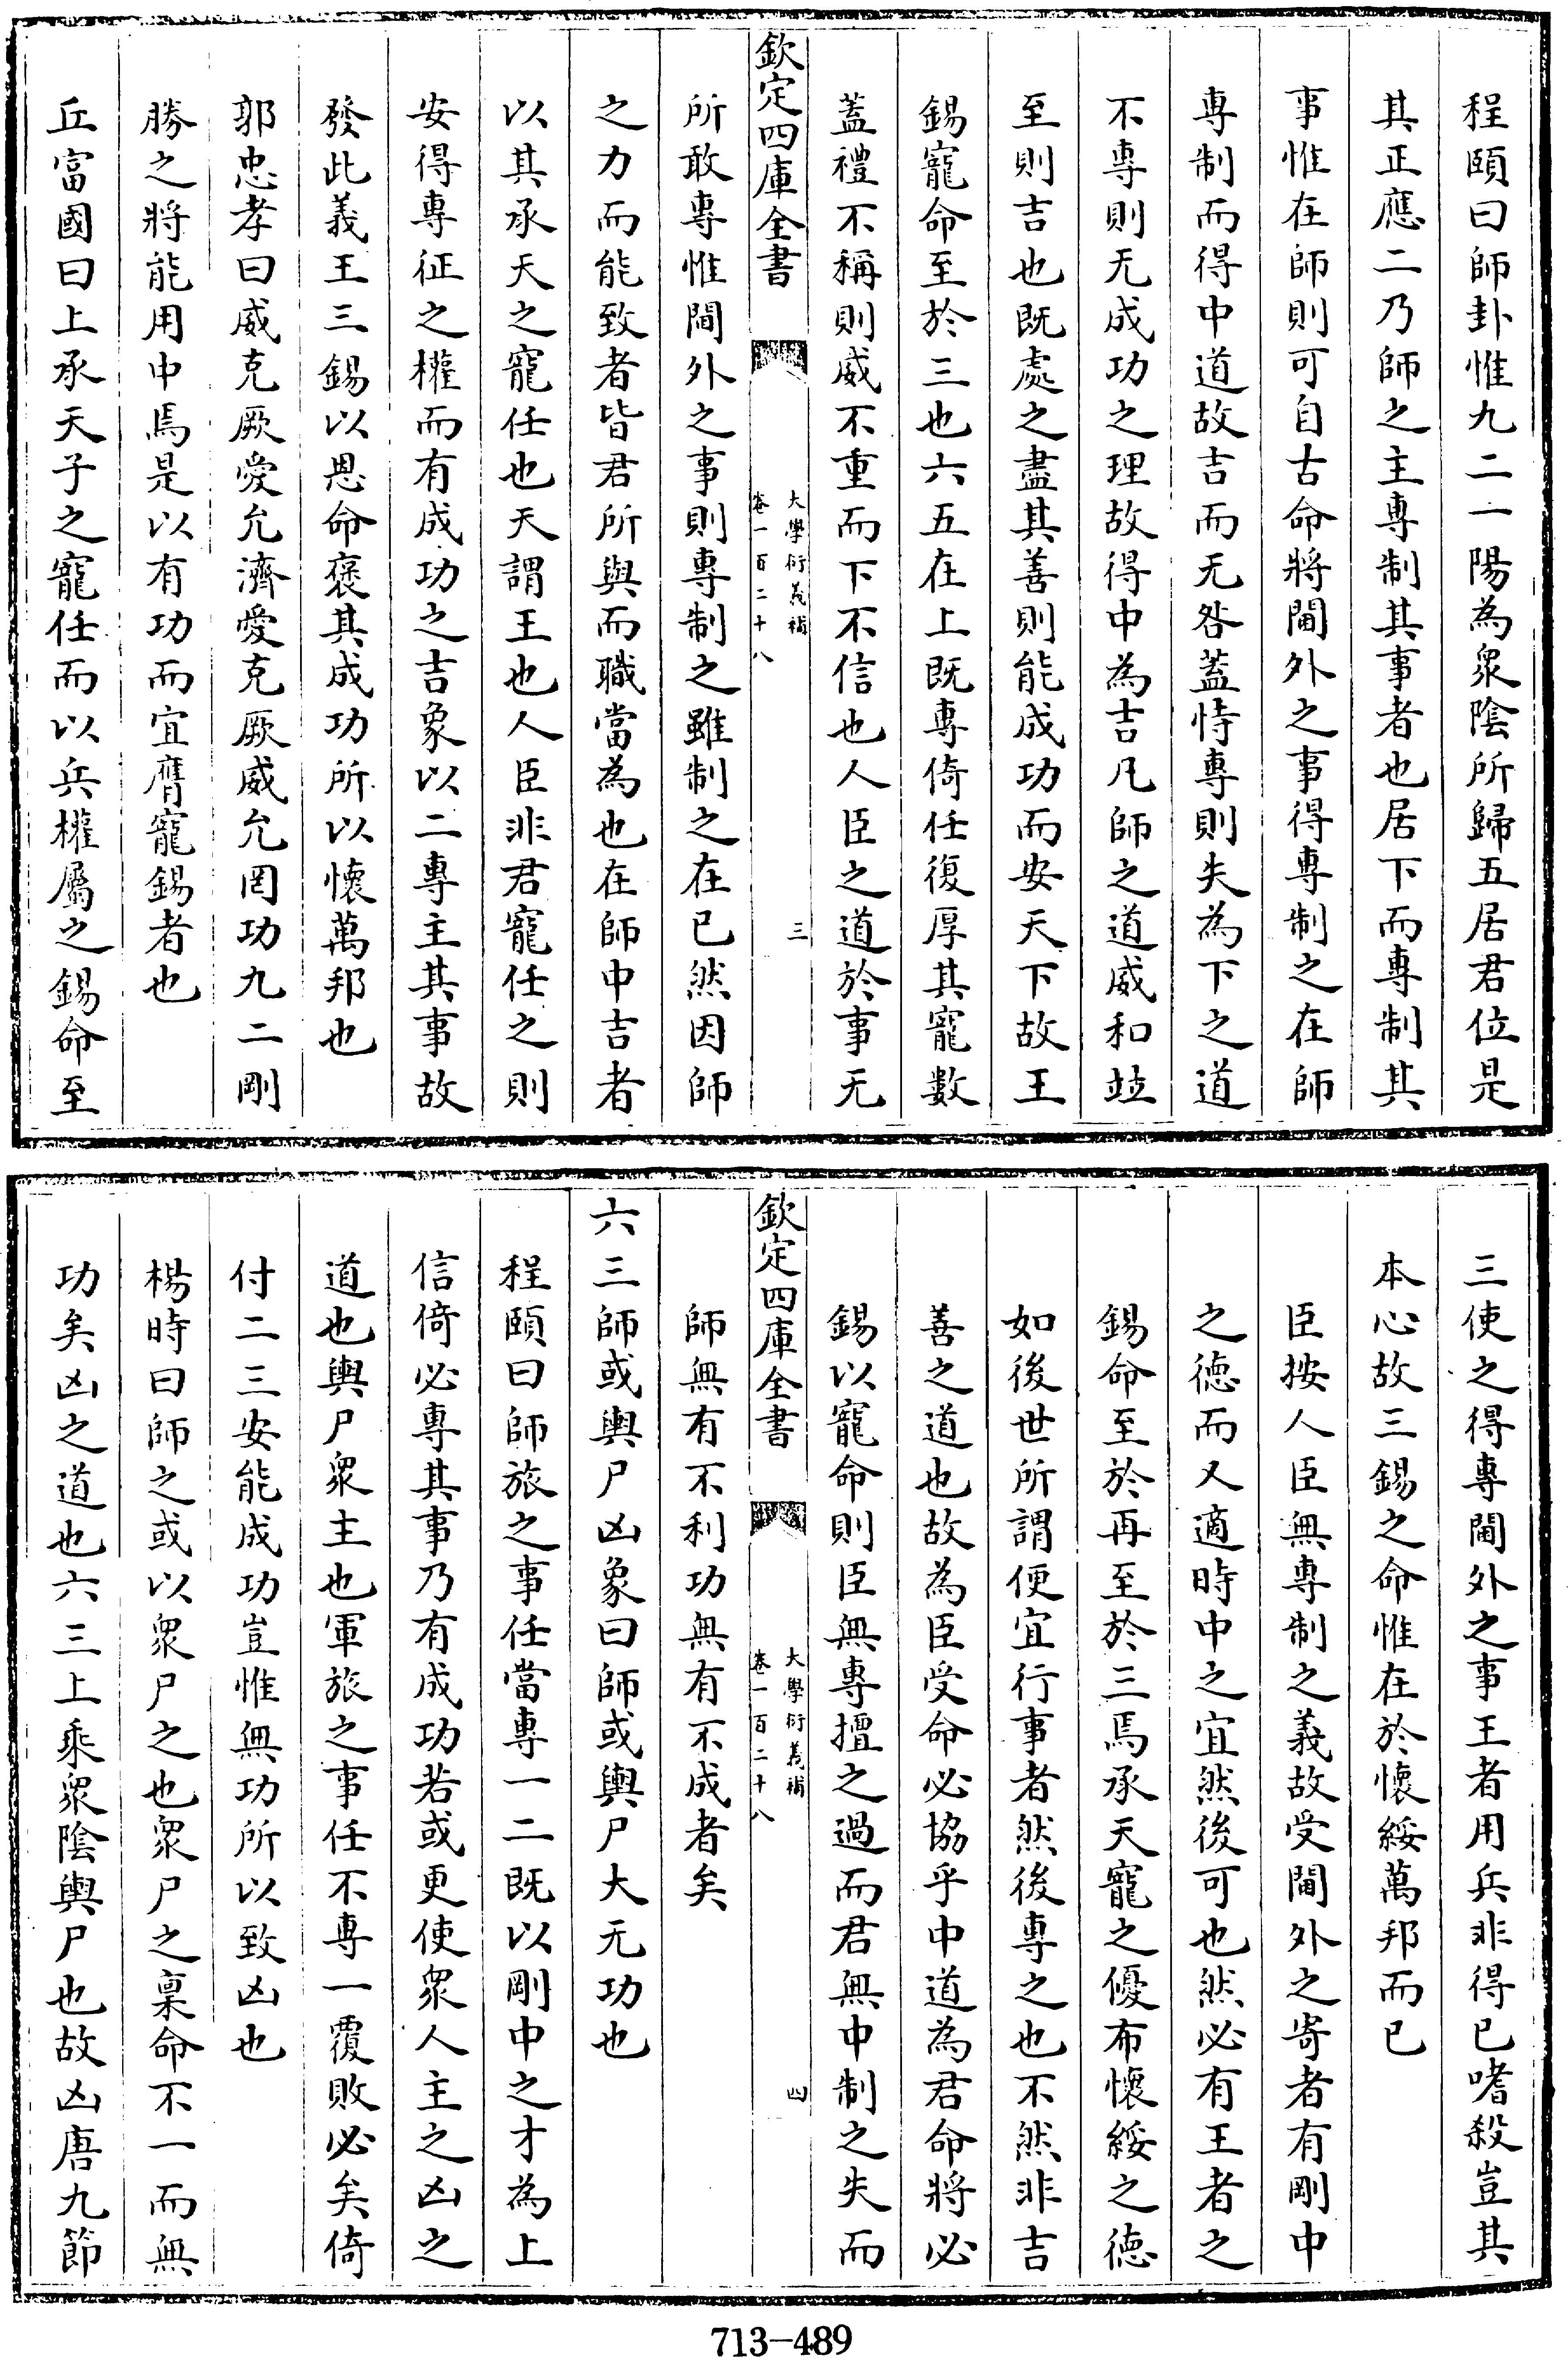 程頤曰師卦惟九二一陽為衆陰所歸五居君位是
其正應二乃師之主專制其事者也居下而專制其
事惟在師則可自古命將閫外之事得專制之在師
專制而得中道故吉而无咎蓋恃專則失為下之道
不專則无成功之理故得中為吉凡師之道威和竝
至則吉也既處之盡其善則能成功而安天下故王
錫寵命至於三也六五在上既專倚任復厚其寵數
蓋禮不稱則威不重而下不信也人臣之道於事无
欽定四庫全書
大學衍義補
卷一百二十八
三
所敢專惟閫外之事則專制之雖制之在已然因師
之力而能致者皆君所與而職當為也在師中吉者
以其承天之寵任也天謂王也人臣非君寵任之則
安得專征之權而有成功之吉象以二專主其事故
發此義王三錫以恩命褒其成功所以懷萬邦也
郭忠孝曰威克厥愛允濟愛克厥威允罔功九二剛
勝之將能用中焉是以有功而宜膺寵錫者也
丘富國曰上承天子之寵任而以兵權屬之錫命至
三使之得專閫外之事王者用兵非得已嗜殺豈其
本心故三錫之命惟在於懷綏萬邦而已
臣按人臣無專制之義故受閫外之寄者有剛中
之德而又適時中之宜然後可也然必有王者之
錫命至於再至於三焉承天寵之優布懷綏之德
如後世所謂便宜行事者然後專之也不然非吉
善之道也故為臣受命必協乎中道為君命將必
錫以寵命則臣無專擅之過而君無中制之失而
欽定四庫全書
大學衍義補
卷一百二十八
四
師無有不利功無有不成者矣
六三師或輿尸凶象曰師或輿尸大无功也
程頤曰師旅之事任當專一二既以剛中之才為上
信倚必專其事乃有成功若或更使衆人主之凶之
道也輿尸衆主也軍旅之事任不專一覆敗必矣倚
付二三安能成功豈惟無功所以致凶也
楊時曰師之或以衆尸之也衆尸之稟命不一而無
功矣凶之道也六三上乘衆陰輿尸也故凶唐九節
713-489